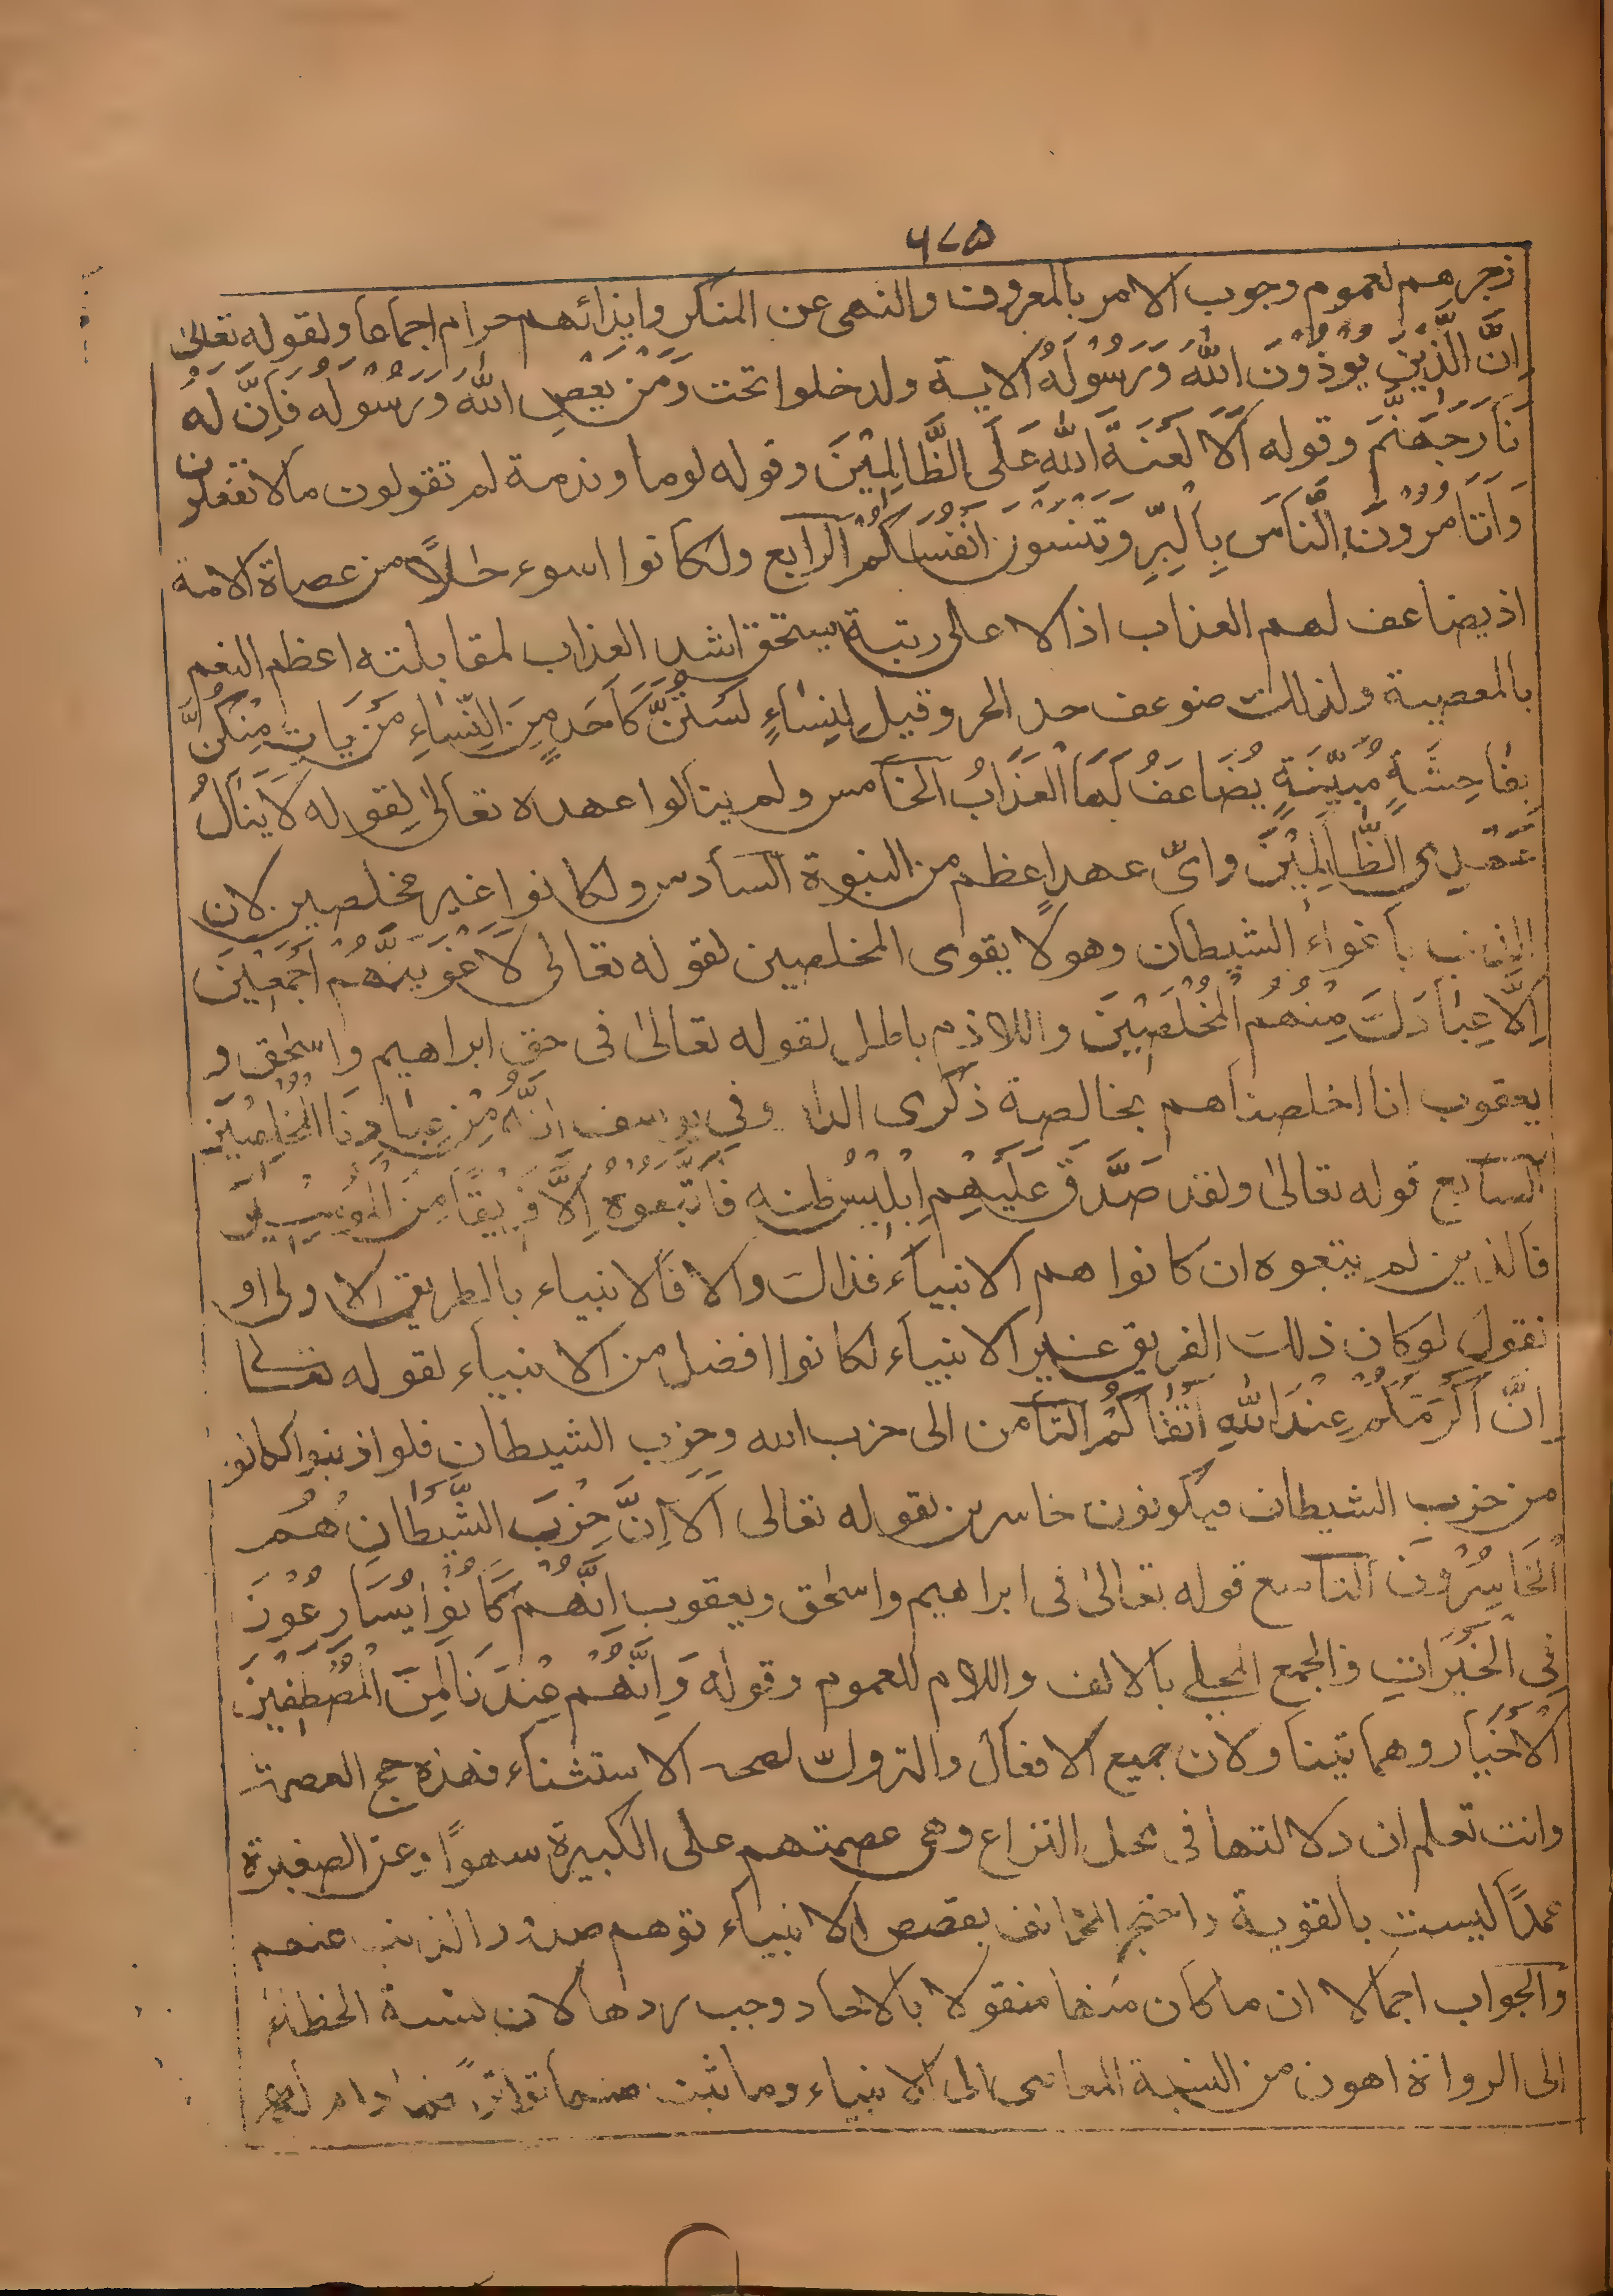 ٦٧٥
زجرهم لعموم وجوب الامر بالمعروف والنهى عن المنكر وايذائهم حرام اجماعا ولقوله تعالىٰ
اِنَّ الَّذِيْنَ يُوْذُوْنَ اللّٰهَ وَرَسُوْلَهُ الاية ولدخلوا تحت وَمَنْ يَعْصِ اللّٰهَ وَرَسُوْلَه فَاِنَّ لَهُ
نَارَ جَهَنَّمَ وقوله اَلَا لَعْنَةُ اللّٰهِ عَلَى الظَّالِمِيْنَ وقوله لوما وندمة لم تقولون مالا تفعلون
وَاَتَامُرُوْنَ النَّاسَ بِالْبِرِّ وَتَنْسَوْنَ اَنْفُسَكُمْ الرابع ولكانوا اسوء حالاً من عصاة الامة
اذ يضاعف لهم العذاب اذ الاعلى رتبة يستحق اشد العذاب لمقابلته اعظم النعم
بالمعصية ولذلك ضوعف حد الحر وقيل لِنِسَاءٍ لَسْتُنَّ كَاَحَدٍ مِنَ النِّسَاءِ مَنْ يَاتِ مِنْكُنَّ
بِفَاحِشَةٍ مُبَيِّنَةٍ يُضَاعَفُ لَهَا الْعَذَابُ الخامس ولم ينالوا عهده تعالىٰ لقوله لَا يَنَالُ
عَهْدِى الظَّالِمِيْنَ واىّ عهدٍ اعظم من النبوة السادس ولكانوا غير مخلصين لان
الذنب باغواء الشيطان وهو لا يقوى المخلصين لقوله تعالى لَاُغْوِيَنَّهُمْ اَجْمَعِيْنَ
اِلَّا عِبَادَكَ مِنْهُمُ الْمُخْلَصِيْنَ واللازم باطل لقوله تعالىٰ فى حق ابراهيم واسحٰق و
يعقوب انا اخلصناهم بخالصة ذكرى الدار وفى يوسف اِنَّهُ مِنْ عِبَادِنَا الْمُخْلَصِيْنَ
السابع قوله تعالىٰ ولقد صَدَّقَ عَلَيْهِمْ اِبْلِيْسُ ظنه فَاتَّبَعُوْهُ اِلَّا فَرِيْقًا مِنَ الْمُؤْمِنِيْنَ
فالذين لم يتبعوه ان كانوا هم الانبياء فذاك والا فالانبياء بالطريق الاولى او
نقول لو كان ذلك الفريق غير الانبياء لكانوا افضل من الانبياء لقوله تعالىٰ
اِنَّ اَكْرَمَكُمْ عِنْدَ اللّٰهِ اَتْقَاكُمْ الثامن الى حزب الله وحزب الشيطان فلو اذنبوا لكانوا
من حزب الشيطان فيكونون خاسرين لقوله تعالى اَلَا اِنَّ حِزْبَ الشَّيْطَانِ هُمُ
الْخَاسِرُوْنَ التاسع قوله تعالىٰ فى ابراهيم واسحٰق ويعقوب اِنَّهُمْ كَانُوْا يُسَارِعُوْنَ
فِى الْخَيْرَاتِ والجمع المحلى بالالف واللام للعموم وقوله وَاِنَّهُمْ عِنْدَنَا لَمِنَ الْمُصْطَفَيْنَ
الْاَخْيَارِ وهما يتناولان جميع الافعال والتروك لصحة الاستثناء فهذه حجج العصمة
وانت تعلم ان دلالتها فى محل النزاع وهى عصمتهم على الكبيرة سهوًا وعن الصغيرة
عمدًا ليست بالقوية واحتج المخالف بقصص الانبياء توهم صدور الذنب عنهم
والجواب اجمالا ان ما كان منها منقولا بالاحاد وجب ردها لان نسبة الخطاء
الى الرواة اهون من النسبة المعاصى الى الانبياء وما ثبت منها تواتراً فما دام له